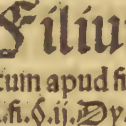 Filiu
tum apud fi
.fi.§.ij. Dy